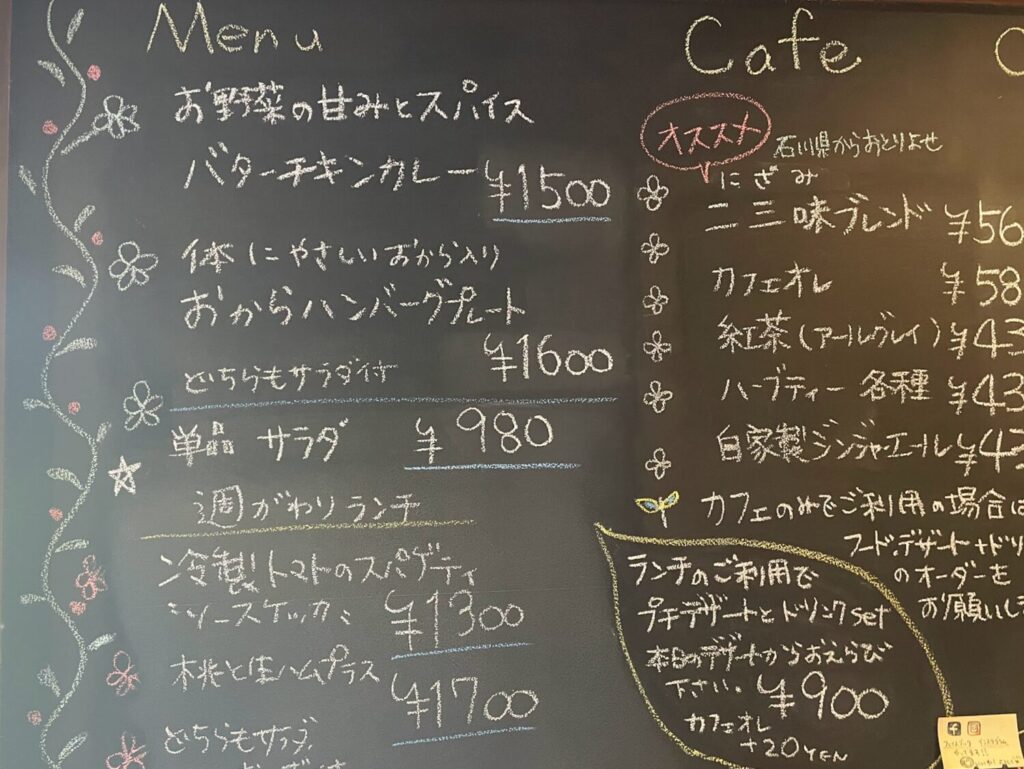 Menu
お野菜の甘みとスパイス
バターチキンカレー ¥1500
体にやさしいおから入り
おからハンバーグプレート
¥1600
どちらもサラダ付
単品 サラダ ¥980
週がわりランチ
冷製トマトのスパゲティ
¥1300
生ハムプラス
¥1700
どちらもサラダ
Cafe
オススメ
石川県からおとりよせ
にざみ
二三味ブレンド ¥56
カフェオレ ¥58
紅茶(アールグレイ) ¥43
ハーブティー 各種 ¥43
自家製ジンジャエール ¥43
カフェのみでご利用の場合は
フード、デザート+ドリ
のオーダーを
お願いし
ランチのご利用で
プチデザートとドリンクset
本日のデザートからおえらび
下さい。 ¥900
カフェオレ
+20YEN